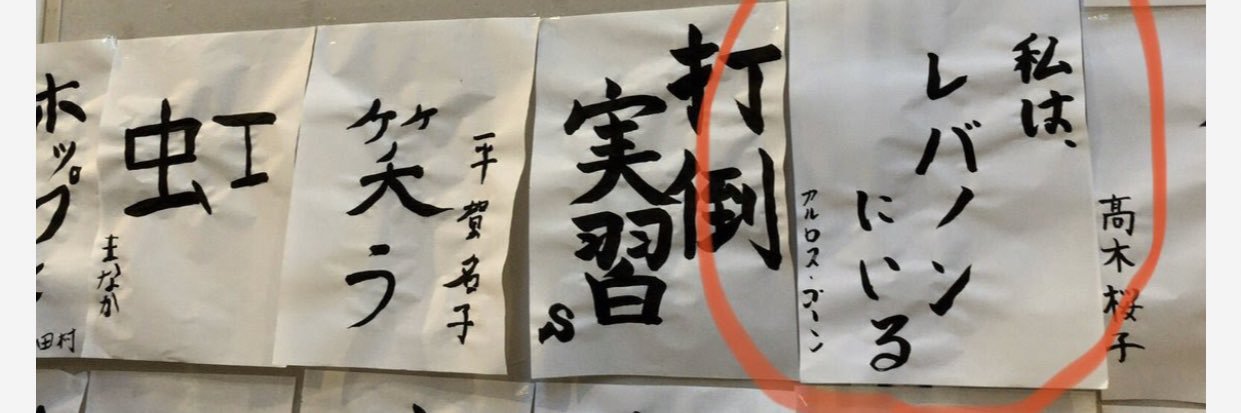 高木桜子
私は、
レバノン
にいる
カルロス・ゴーン
打倒
実習
S
平賀名子
笑う
虹
まなか
ホップ
田村